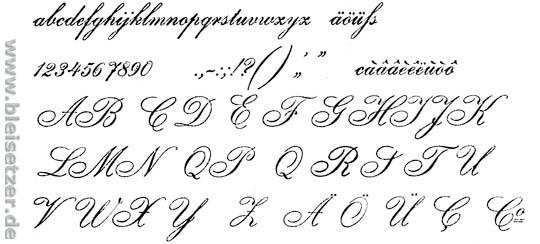 abcdefghijklmnopqrstuvwxyz äöüſs
1234567890 .,-:;!?() ' „ ” càâáèêëùòô
A B C D E F G H I J K
L M N O P Q R S T U
V W X Y Z Ä Ö Ü Ç Co
www.bleisetzer.de